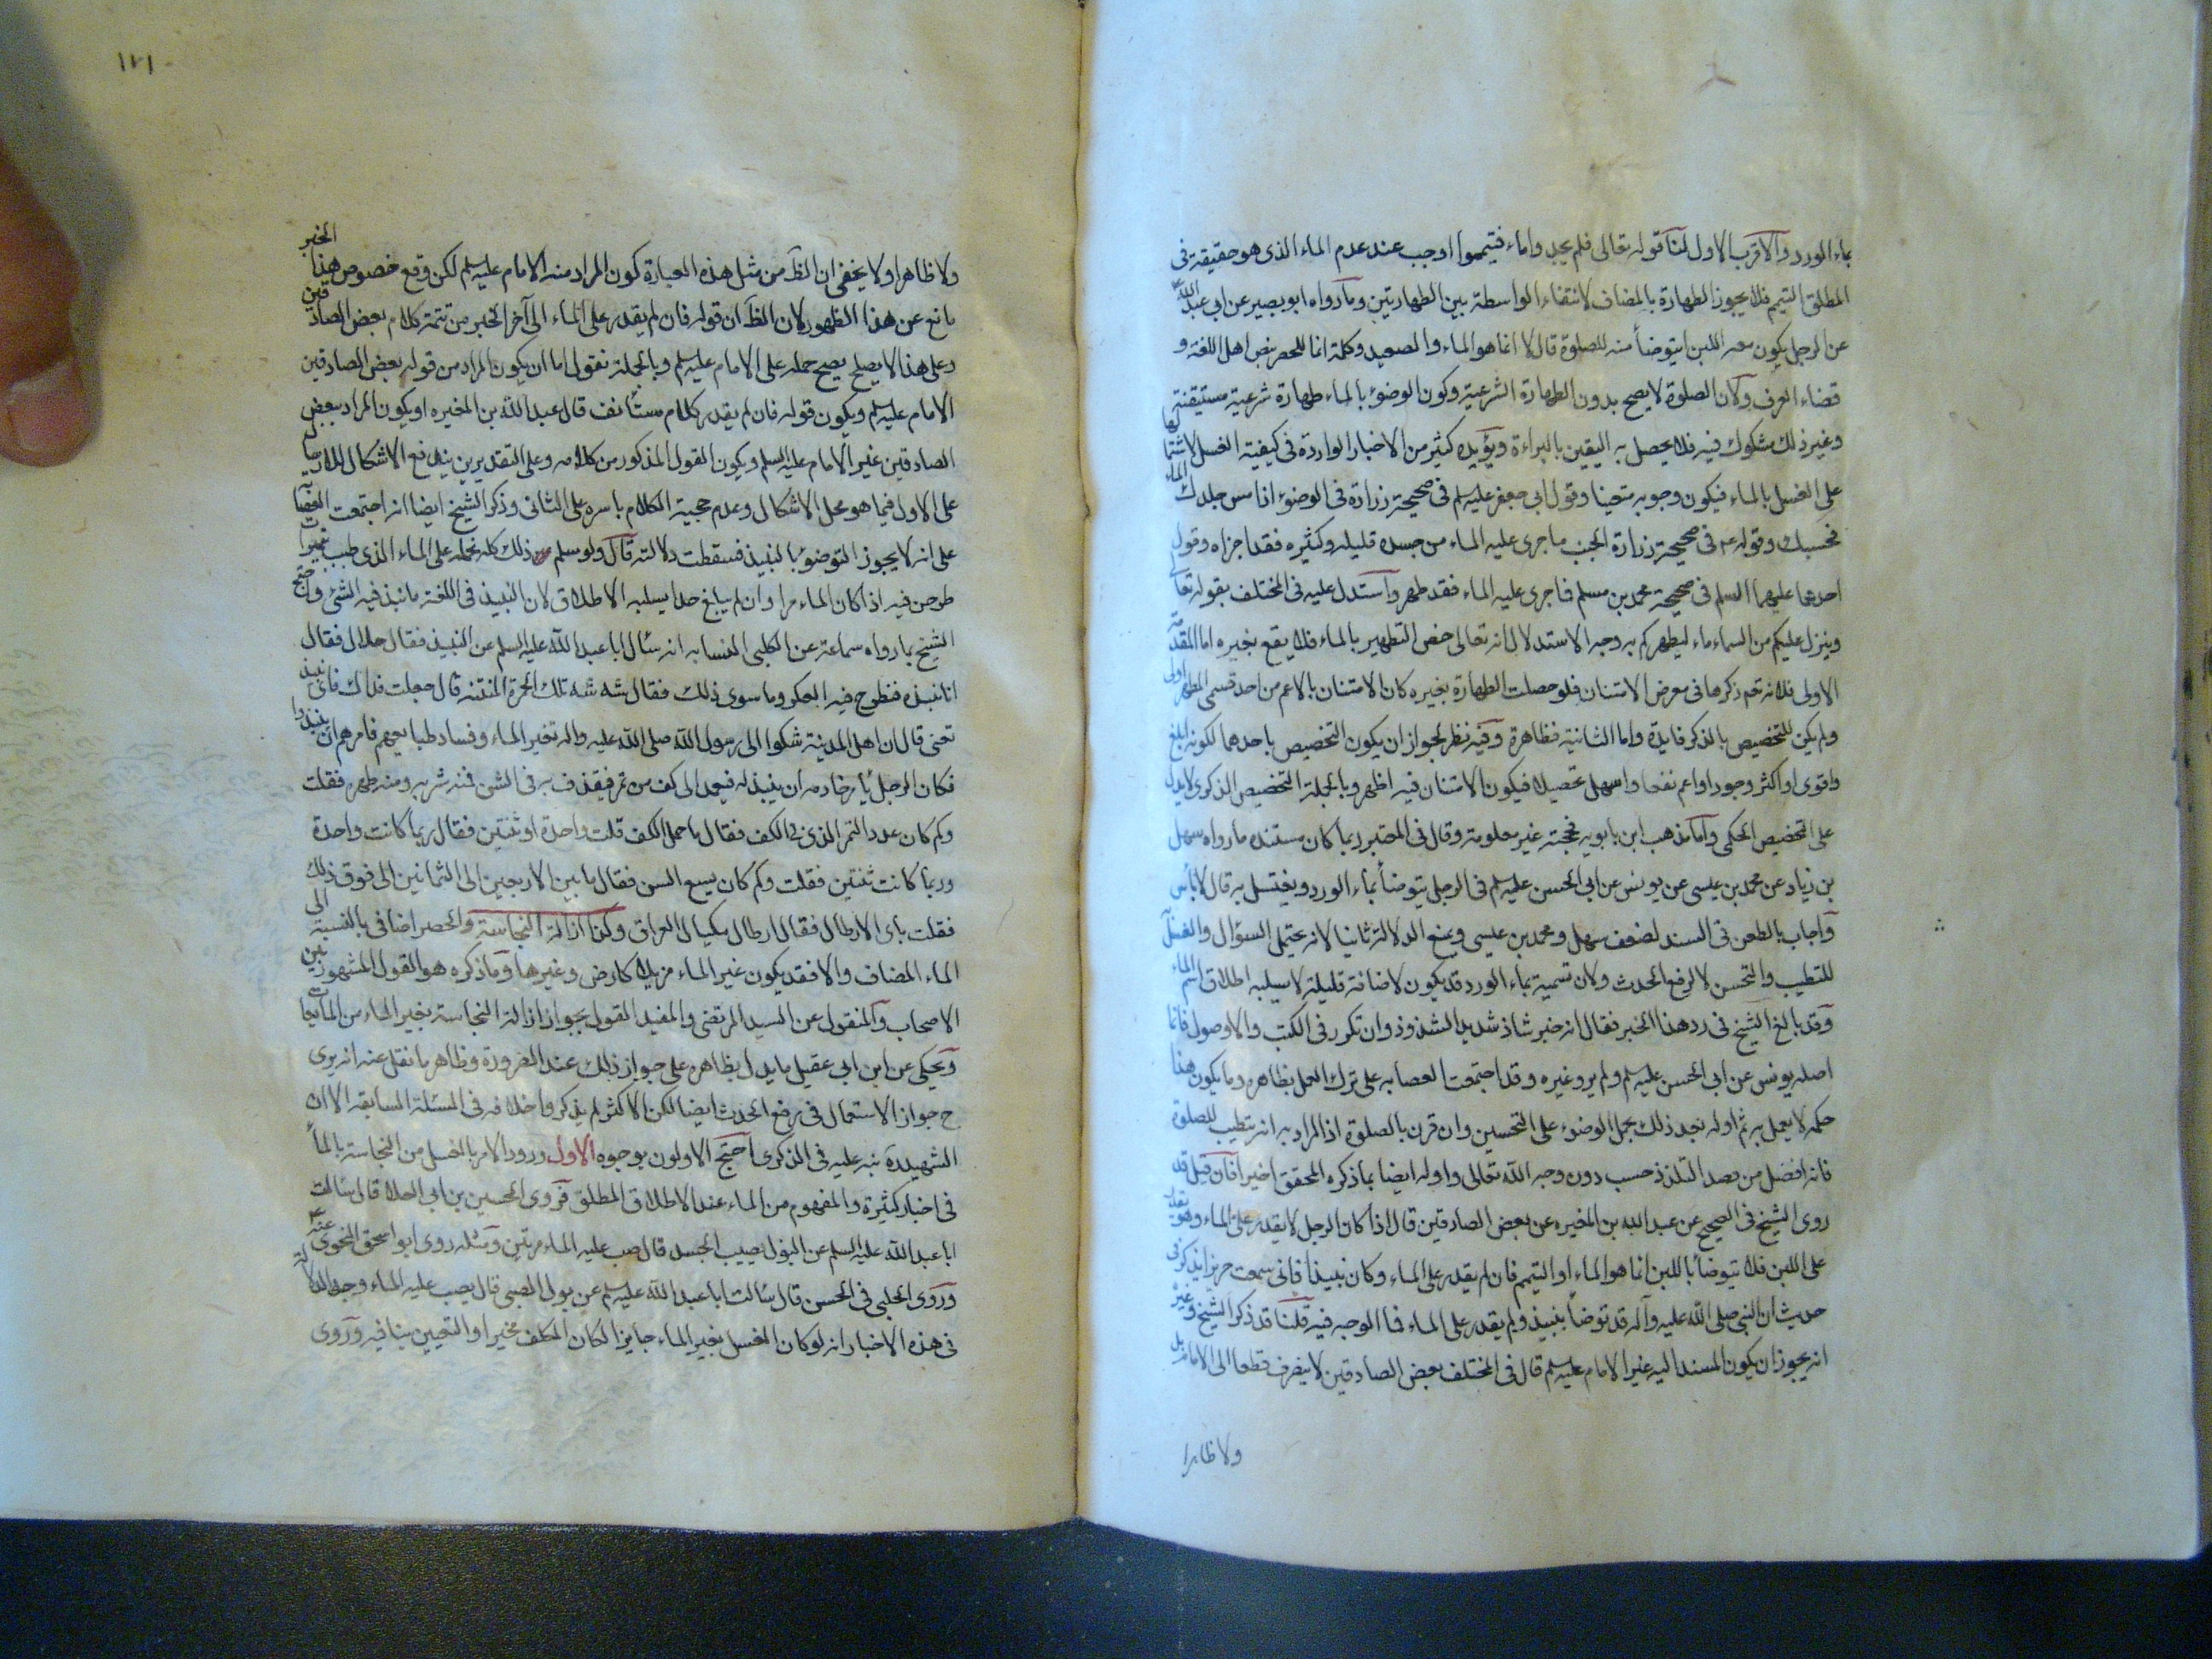 بماء الورد والاقرب الاول لنا قوله تعالى فلم تجدوا ماء فتيمموا اوجب عند عدم الماء الذى هو حقيقة فى
المطلق التيمم فلا يجوز الطهارة بالمضاف لانتفاء الواسطة بين الطهارتين وما رواه ابو بصير عن ابى عبد الله ع
عن الرجل يكون معه اللبن ايتوضأ منه للصلوة قال لا انما هو الماء والصعيد وكلمة انما للحصر بنص اهل اللغة و
قضاء العرف ولان الصلوة لا يصح بدون الطهارة الشرعية وكون الوضوء بالماء طهارة شرعية مستيقنة
وغير ذلك مشكوك فيه فلا يحصل به اليقين بالبراءة ويؤيده كثير من الاخبار الواردة فى كيفية الغسل لاشتمالها
على الغسل بالماء فيكون وجوبه متعينا وقول ابى جعفر عليه السلم فى صحيحة زرارة فى الوضوء اذا مس جلدك الماء
فحسبك وقوله ع فى صحيحة زرارة الجنب ما جرى عليه الماء من جسده قليله وكثيره فقد اجزاه وقول
احدهما عليهما السلم فى صحيحة محمد بن مسلم فما جرى عليه الماء فقد طهر واستدل عليه فى المختلف بقوله تعا
وينزل عليكم من السماء ماء ليطهركم به وجه الاستدلال انه تعالى خص التطهير بالماء فلا يقع بغيره اما المقدمة
الاولى فلانه تم ذكرها فى معرض الامتنان فلو حصلت الطهارة بغيره كان الامتنان بالاعم من احد قسمى المطهر اولى
ولم يكن للتخصيص بالذكر فايدة واما الثانية فظاهرة وفيه نظر لجواز ان يكون التخصيص باحدهما لكونه ابلغ
واقوى او اكثر وجودا واعم نفعا واسهل تحصيلا فيكون الامتنان فيه اظهر وبالجملة التخصيص الذكرى لا يدل
على التخصيص الحكمى واما مذهب ابن بابويه فحجته غير معلومة وقال فى المعتبر ربما كان مستنده ما رواه سهل
بن زياد عن محمد بن عيسى عن يونس عن ابى الحسن عليه السلم فى الرجل يتوضأ بماء الورد ويغتسل به قال لا بأس
واجاب بالطعن فى السند لضعف سهل ومحمد بن عيسى وبمنع الدلالة ثانيا لانه يحتمل السؤال والغسل
للتطيب والتحسن لا لرفع الحدث ولان تسمية بماء الورد قد يكون لاضافة قليلة لا يسلبه اطلاق اسم الماء
وقد بالغ الشيخ فى رد هذا الخبر فقال انه خبر شاذ شديد الشذوذ وان تكرر فى الكتب والاصول فانما
اصله يونس عن ابى الحسن عليه السلم ولم يروه غيره وقد اجتمعت العصابه على ترك العمل بظاهره وما يكون هذا
حكمه لا يعمل به ثم اوله بعد ذلك بحمل الوضوء على التحسين وان قرن بالصلوة اذ المراد به انه يتطيب للصلوة
فانه افضل من قصد التلذذ حسب دون وجه الله تعالى واوله ايضا بما ذكره المحقق اخيرا فان قيل قد
روى الشيخ فى الصحيح عن عبد الله بن المغيره عن بعض الصادقين قال اذا كان الرجل لا يقدر على الماء وهو يقدر
على اللبن فلا يتوضأ باللبن انما هو الماء او التيمم فان لم يقدر على الماء وكان نبيذا فانى سمعت حريزا يذكر فى
حديث ان النبى صلى الله عليه وآله قد توضأ بنبيذ ولم يقدر على الماء فما الوجه فيه قلنا قد ذكر الشيخ وغيره
انه يجوز ان يكون المسند اليه غير الامام عليه السلم قال فى المختلف بعض الصادقين لا ينصرف قطعا الى الامام بل
ولا ظاهرا
١٢١
ولا ظاهرا ولا يخفى ان الظ من مثل هذه العبارة كون المراد منه الامام عليه السلم لكن وقع خصوص هذا الخبر
مانع عن هذا الظهور لان الظ ان قوله فان لم يقدر على الماء الى آخر الخبر من تتمة كلام بعض الصادقين
وعلى هذا لا يصلح يصح حمله على الامام عليه السلم وبالجملة نقول اما ان يكون المراد من قوله بعض الصادقين
الامام عليه السلم ويكون قوله فان لم يقدر كلام مستأنف قال عبد الله بن المغيره او يكون المراد ببعض
الصادقين غير الامام عليه السلم ويكون القول المذكور من كلامه وعلى التقديرين يندفع الاشكال
على الاول فيما هو محل الاشكال وعدم حجية الكلام باسره على الثانى وذكر الشيخ ايضا انه اجتمعت العصابه
على انه لا يجوز التوضوء بالنبيذ فسقطت دلالته قال ولو سلم ذلك كله نحمله على الماء الذى طيب بتميرات
طرحن فيه اذا كان الماء مرا وان لم يبلغ حدا يسلبه الاطلاق لان النبيذ فى اللغة ما نبذ فيه الشئ واحتج
الشيخ بما رواه سماعة عن الكلبى النسابه انه سأل ابا عبد الله عليه السلم عن النبيذ فقال حلال فقال
انا ننبذه فنطرح فيه العكر وما سوى ذلك فقال شه شه تلك الخمرة المنتنه قال جعلت فداك فاى نبيذ
تعنى قال ان اهل المدينة شكوا الى رسول الله صلى الله عليه واله تغير الماء وفساد طبايعهم فامرهم ان ينبذوا
فكان الرجل يأمر خادمه ان ينبذ له فيعمد الى كف من تمر فيقذف به فى الشن فمنه شربه ومنه طهره فقلت
وكم كان عدد التمر الذى فى الكف فقال ما حمل الكف قلت واحدة او ثنتين فقال ربما كانت واحدة
وربما كانت ثنتين فقلت وكم كان يسع الشن فقال ما بين الاربعين الى الثمانين الى فوق ذلك
فقلت باى الارطال فقال ارطال مكيال العراق وكذا ازالة النجاسة والحصر اضافى بالنسبة الى
الماء المضاف والا فقد يكون غير الماء مزيلا كالارض وغيرها وما ذكره هو القول المشهور بين
الاصحاب والمنقول عن السيد المرتضى والمفيد القول بجواز ازالة النجاسة بغير الماء من المايعات
ويحكى عن ابن ابى عقيل ما يدل بظاهره على جواز ذلك عند الضرورة وظاهر ما نقل عنه انه يرى
ح جواز الاستعمال فى رفع الحدث ايضا لكن الاكثر لم يذكروا خلافه فى المسئلة السابقه الا ان
الشهيد ره نبه عليه فى الذكرى احتج الاولون بوجوه الاول ورود الامر بالغسل من النجاسة بالماء
فى اخبار كثيرة والمفهوم من الماء عند الاطلاق المطلق فروى الحسين بن ابى العلا قال سألت
ابا عبد الله عليه السلم عن البول يصيب الجسد قال صب عليه الماء مرتين ومثله روى ابو اسحق النحوى عنه ع
وروى الحلبى فى الحسن قال سألت ابا عبد الله عليه السلم عن بول الصبى قال يصب عليه الماء وجه الدلالة
فى هذه الاخبار انه لو كان الغسل بغير الماء جايزا لكان المكلف مخيرا والتعيين ينافيه وروى